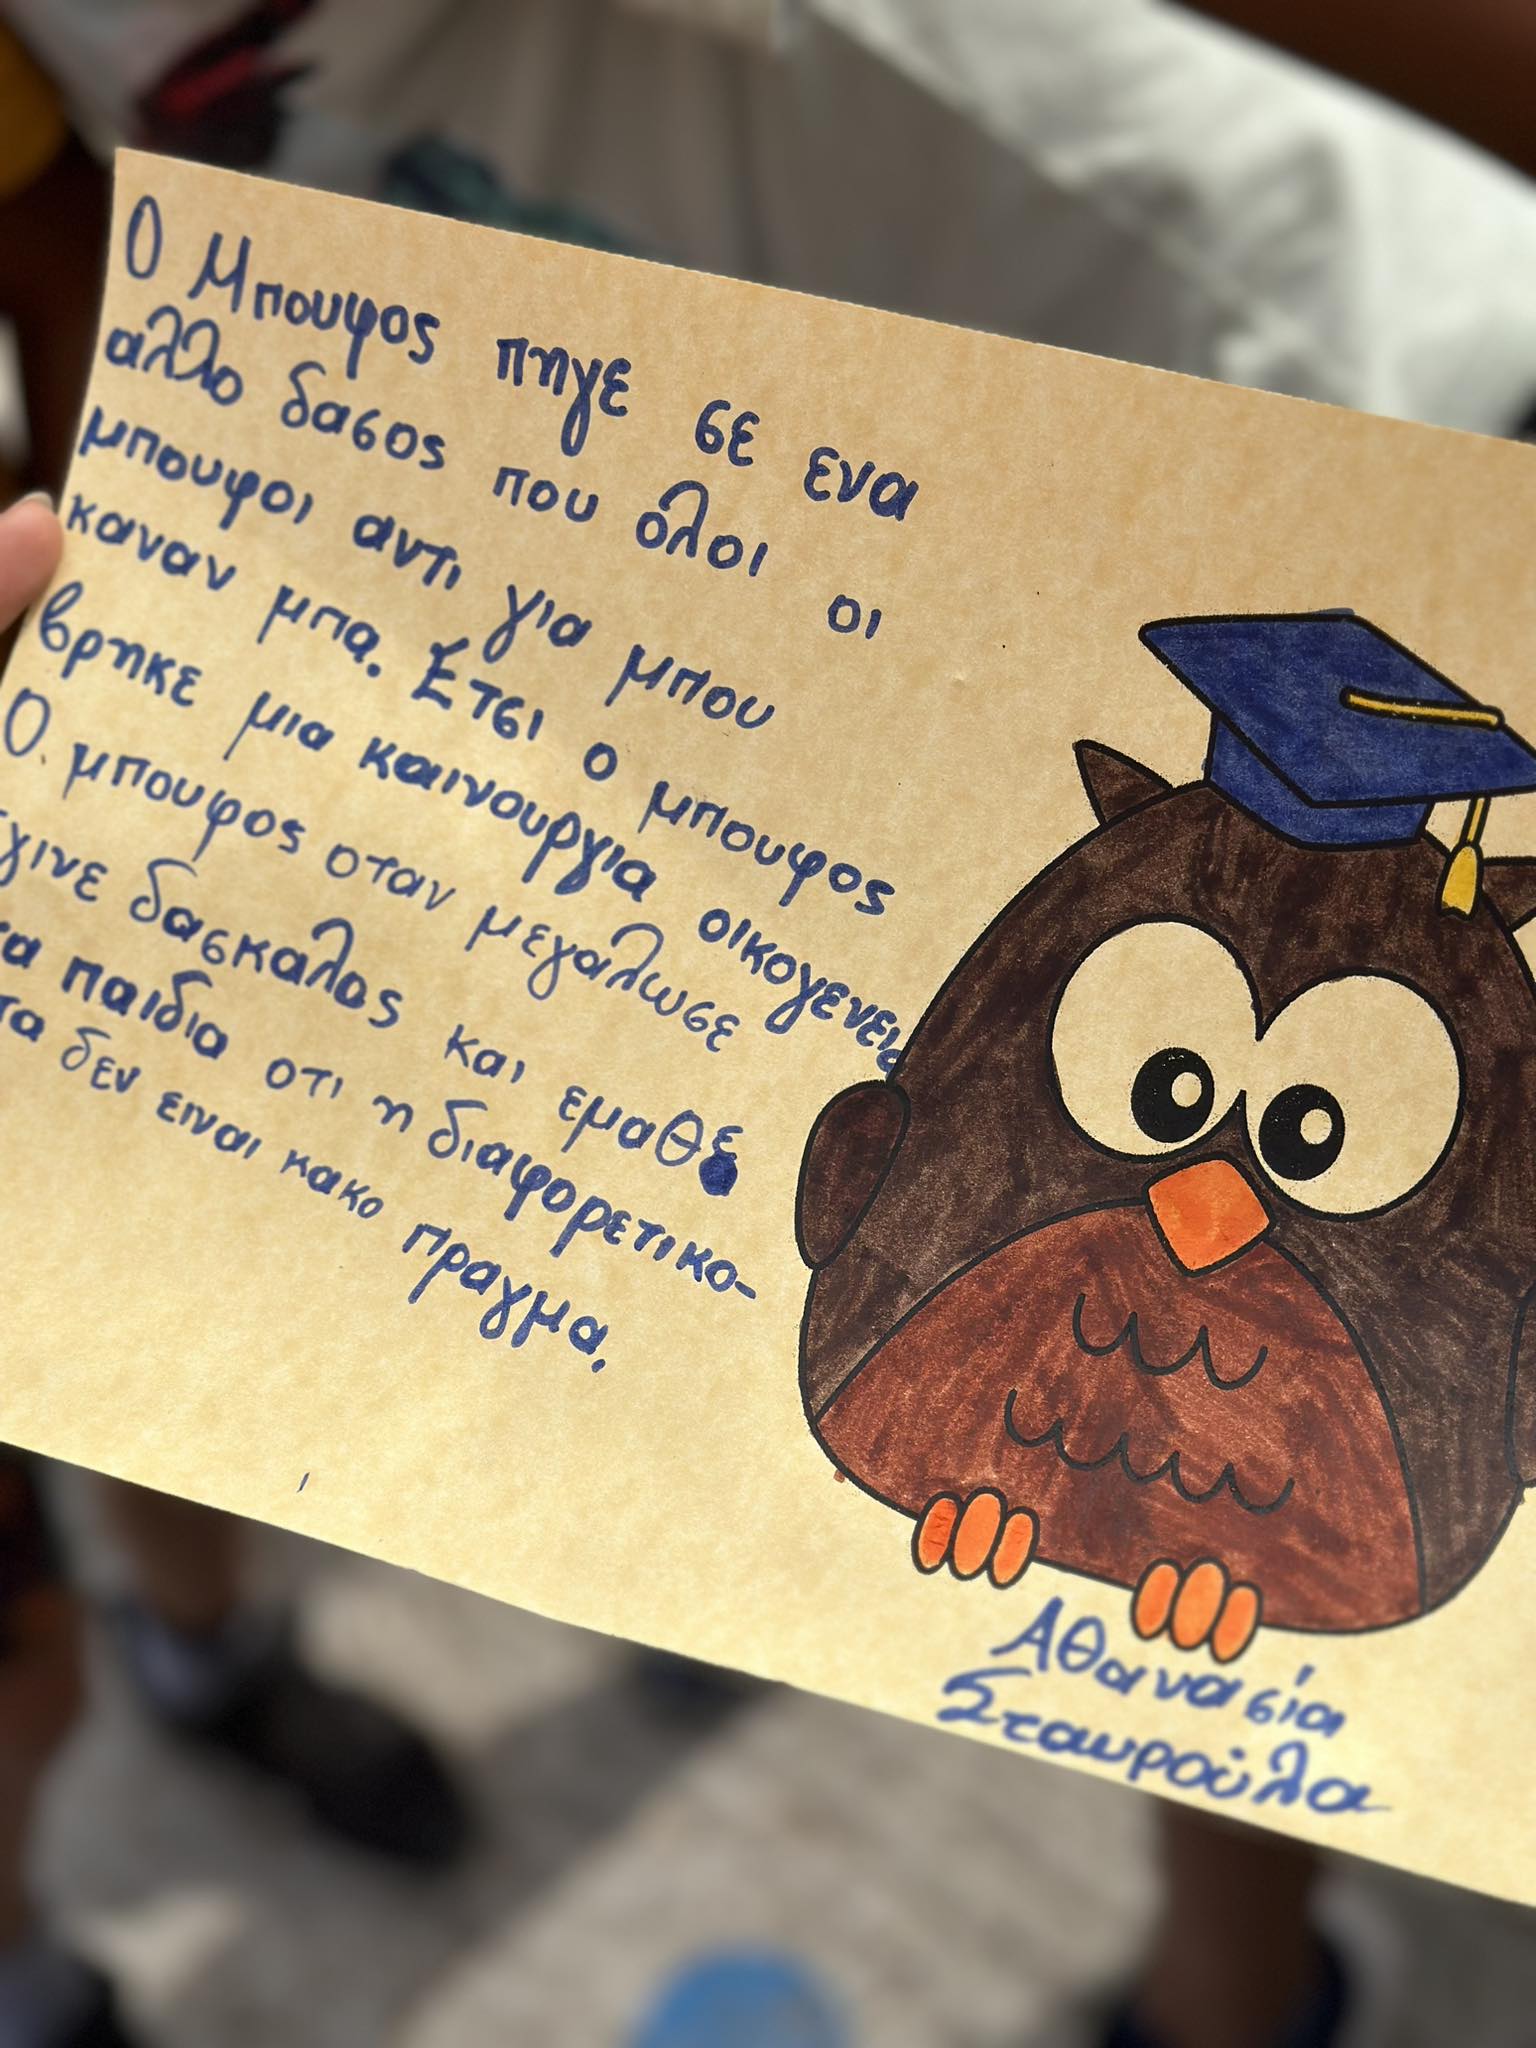 Ο Μπουφος πηγε σε ενα
αλλο δασος που όλοι οι
μπουφοι αντι για μπου
καναν μπα. Ετσι ο μπουφος
βρηκε μια καινουργια οικογενεια
Ο μπουφος οταν μεγαλωσε
εγινε δασκαλος και εμαθε
τα παιδια οτι η διαφορετικο-
τα δεν ειναι κακο πραγμα.
Αθανασία
Σταυρούλα